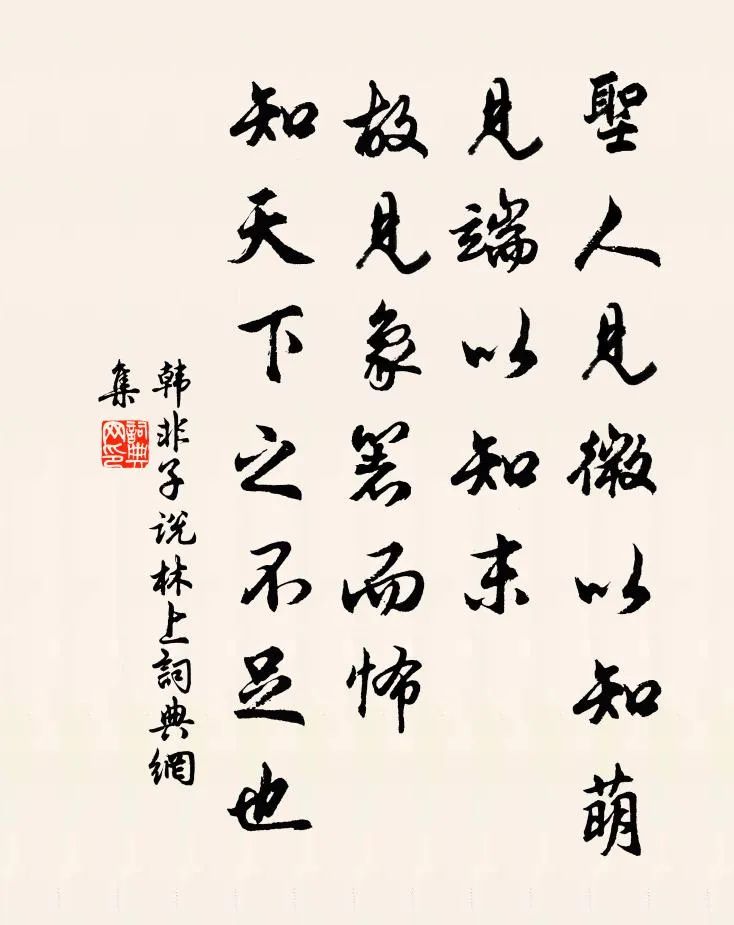 聖人見微以知萌
見端以知末
故見象箸而怖
知天下之不足也
韩非子说林上詞典網
集
詞典
网印